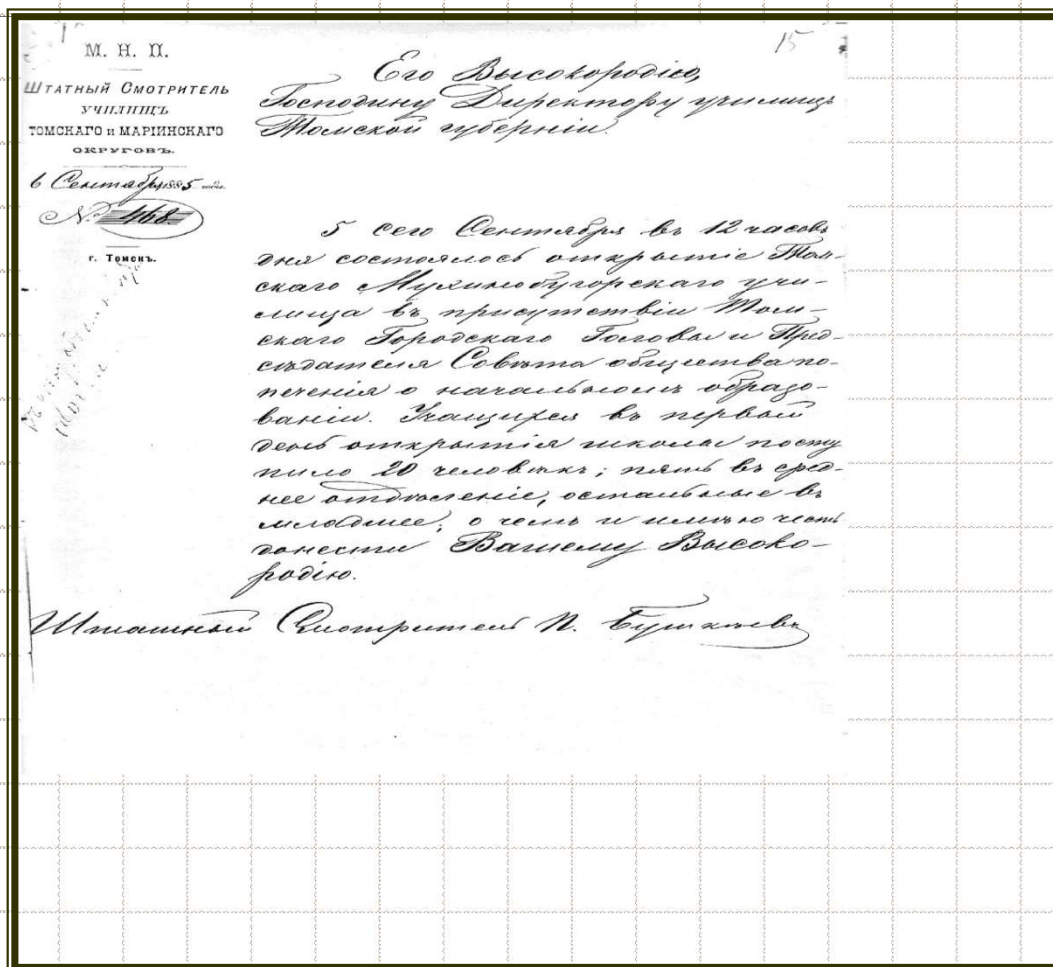 15
М. Н. П.
Штатный Смотритель
училищъ
Томскаго и Маріинскаго
округовъ.
6 Сентября 1885 года.
№ 468
г. Томскъ.
Его Высокородію,
Господину Директору училищъ
Томской губерніи.
5 сего Сентября въ 12 часовъ
дня состоялось открытіе Том-
скаго Мухинобугорскаго учи-
лища въ присутствіи Том-
скаго Городскаго Головы и Пред-
сѣдателя Совѣта общества по-
печенія о начальномъ образо-
ваніи. Учащихся въ первый
день открытія школы посту
пило 20 человѣкъ; пять въ сред-
нее отдѣленіе, остальные въ
младшее; о чемъ и имѣю честь
донести Вашему Высоко-
родію.
Штатный Смотритель П.